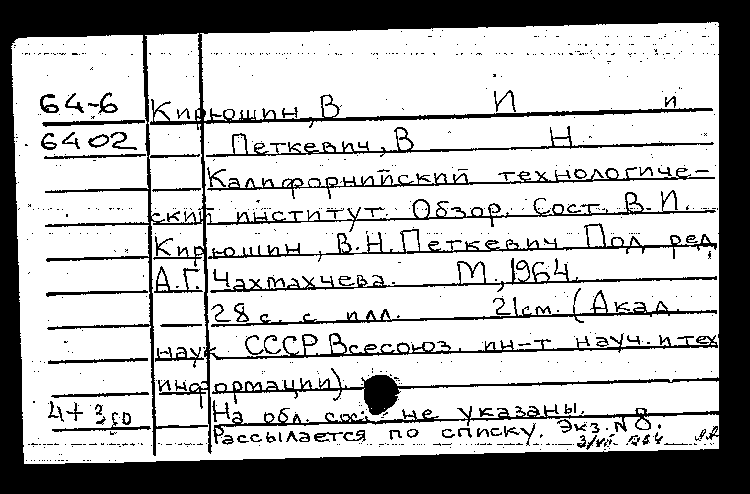 64-6 Кирюшин, В И и
6402 Петкевич, В Н
Калифорнийский технологиче-
ский институт. Обзор. Сост. В.И.
Кирюшин, В.Н. Петкевич. Под ред.
А.Г. Чахмахчева. М., 1964.
28 с. с илл. 21см. (Акад.
наук СССР. Всесоюз. ин-т науч. и тех
информации).
На обл. сост. не указаны.
4+ Рассылается по списку. Экз. N 8.